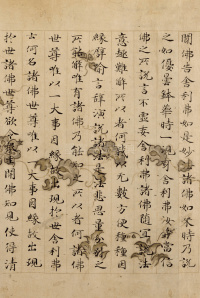 聞佛告舍利弗如是妙法諸佛如來時乃說
之如優曇鉢華時一現耳舍利弗汝等當信
佛之所說言不虛妄舍利弗諸佛隨宜說法
意趣難解所以者何我以無數方便種種因
緣譬喻言辭演說諸法是法非思量分別之
所能解唯有諸佛乃能知之所以者何諸佛
世尊唯以一大事因緣故出現於世舍利弗
云何名諸佛世尊唯以一大事因緣故出現
於世諸佛世尊欲令眾生開佛知見使得清